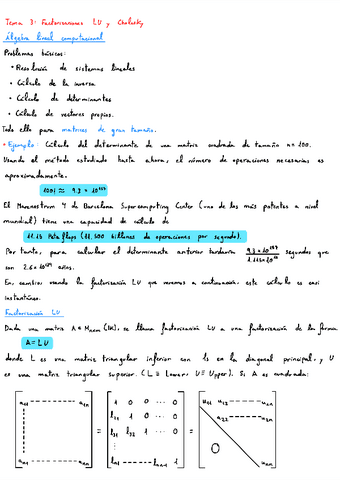 Tema 3: Factorizaciones LU y Cholesky
Álgebra lineal computacional
Problemas básicos:
• Resolución de sistemas lineales
• Cálculo de la inversa
• Cálculo de determinantes
• Cálculo de vectores propios.
Todo ello para matrices de gran tamaño.
• Ejemplo: Cálculo del determinante de una matriz cuadrada de tamaño n = 100.
Usando el método estudiado hasta ahora, el número de operaciones necesarias es
aproximadamente.
100! ≈ 9.3 × 10¹⁵⁷
El Marenostrum 4 de Barcelona Supercomputing Center (uno de los más potentes a nivel
mundial) tiene una capacidad de cálculo de
11.15 Petaflops (11,500 billones de operaciones por segundo).
Por tanto, para calcular el determinante anterior tardaría 9.3 × 10¹⁵⁷ / 1.115 × 10¹⁶ segundos que
son 2.6 × 10¹³⁴ años.
En cambio usando la factorización LU que veremos a continuación, este cálculo es casi
instantáneo.
Factorización LU
Dada una matriz A ∈ Mnxm (IK), se llama factorización LU a una factorización de la forma
A = LU
donde L es una matriz triangular inferior con 1s en la diagonal principal, y U
es una matriz triangular superior. (L ≡ Lower, U ≡ Upper). Si A es cuadrada:
a₁₁ --- a₁n 1 0 0 ... 0 u₁₁ u₁₂ --- u₁n
l₂₁ 1 0 ... 0 u₂₂ --- u₂n
l₃₁ l₃₂ 1 ... 0
= =
0
an₁ --- ann ln₁ --- lnn-1 1 unn